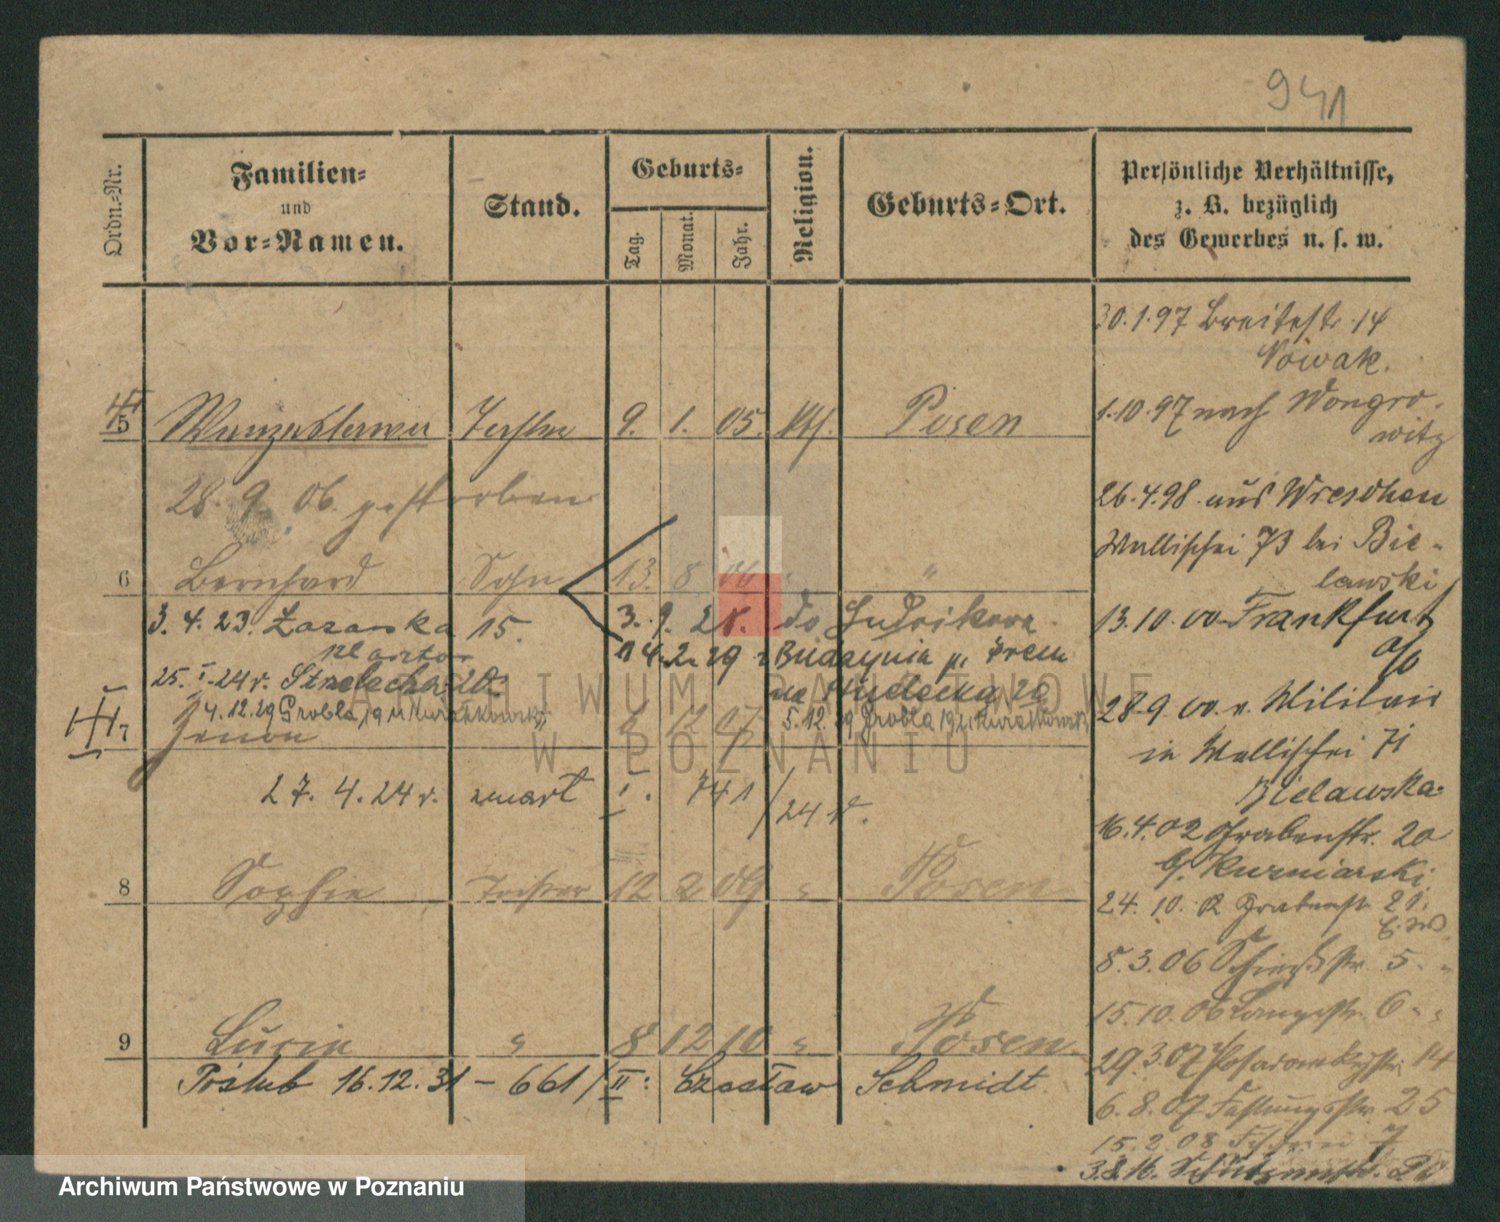 941
Ordn.-Nr.
Familien-
und
Vor-Namen.
Stand.
Geburts-
Tag.
Monat.
Jahr.
Religion.
Geburts-Ort.
Persönliche Verhältnisse,
z. B. bezüglich
des Gewerbes u. s. w.
30.1.97 Breitestr. 14
Nowak.
5 Tochter 9. 1. 05. kth. Posen
1.10.97 nach Wongro-
witz
28. 9. 06. gestorben
26.4.98 aus Wreschen
Wallischei 73 bei Bie-
lawski
6 Bernhard Sohn 13. 8 06 " "
3. 4. 23. Łazarska 15. 3. 9. 28. do
13.10.00 Frankfurt
a/o
14.2.29 z p. Śrem
25. I. 24 r. Strzelecka 20. na Strzelecką 20
4.12.29 Grobla 19 m Kurzątkowski 5.12.29 Grobla 19
28.9.00 v. Militair
in Wallischei 71
Bielawska
7 Zenon 2 12 07
27. 4. 24 r. zmarł I. 741/24 r.
16.4.02 Grabenstr. 20
b/ Kuzniarski
8 Sophie Tochter 12 2 09 " Posen
24. 10. 02 Grabenstr. 21.
8.3.06 Schiesstr. 5
15.10.06 Langestr. 6
9 Lucie " 8 12 10 " Posen
29.3.07 14
Poślub 16.12.31 – 661/II: Czesław Schmidt
6.8.07 Festungsstr. 25
15.2.08 7
3.8.16.
ARCHIWUM PAŃSTWOWE
W POZNANIU
Archiwum Państwowe w Poznaniu